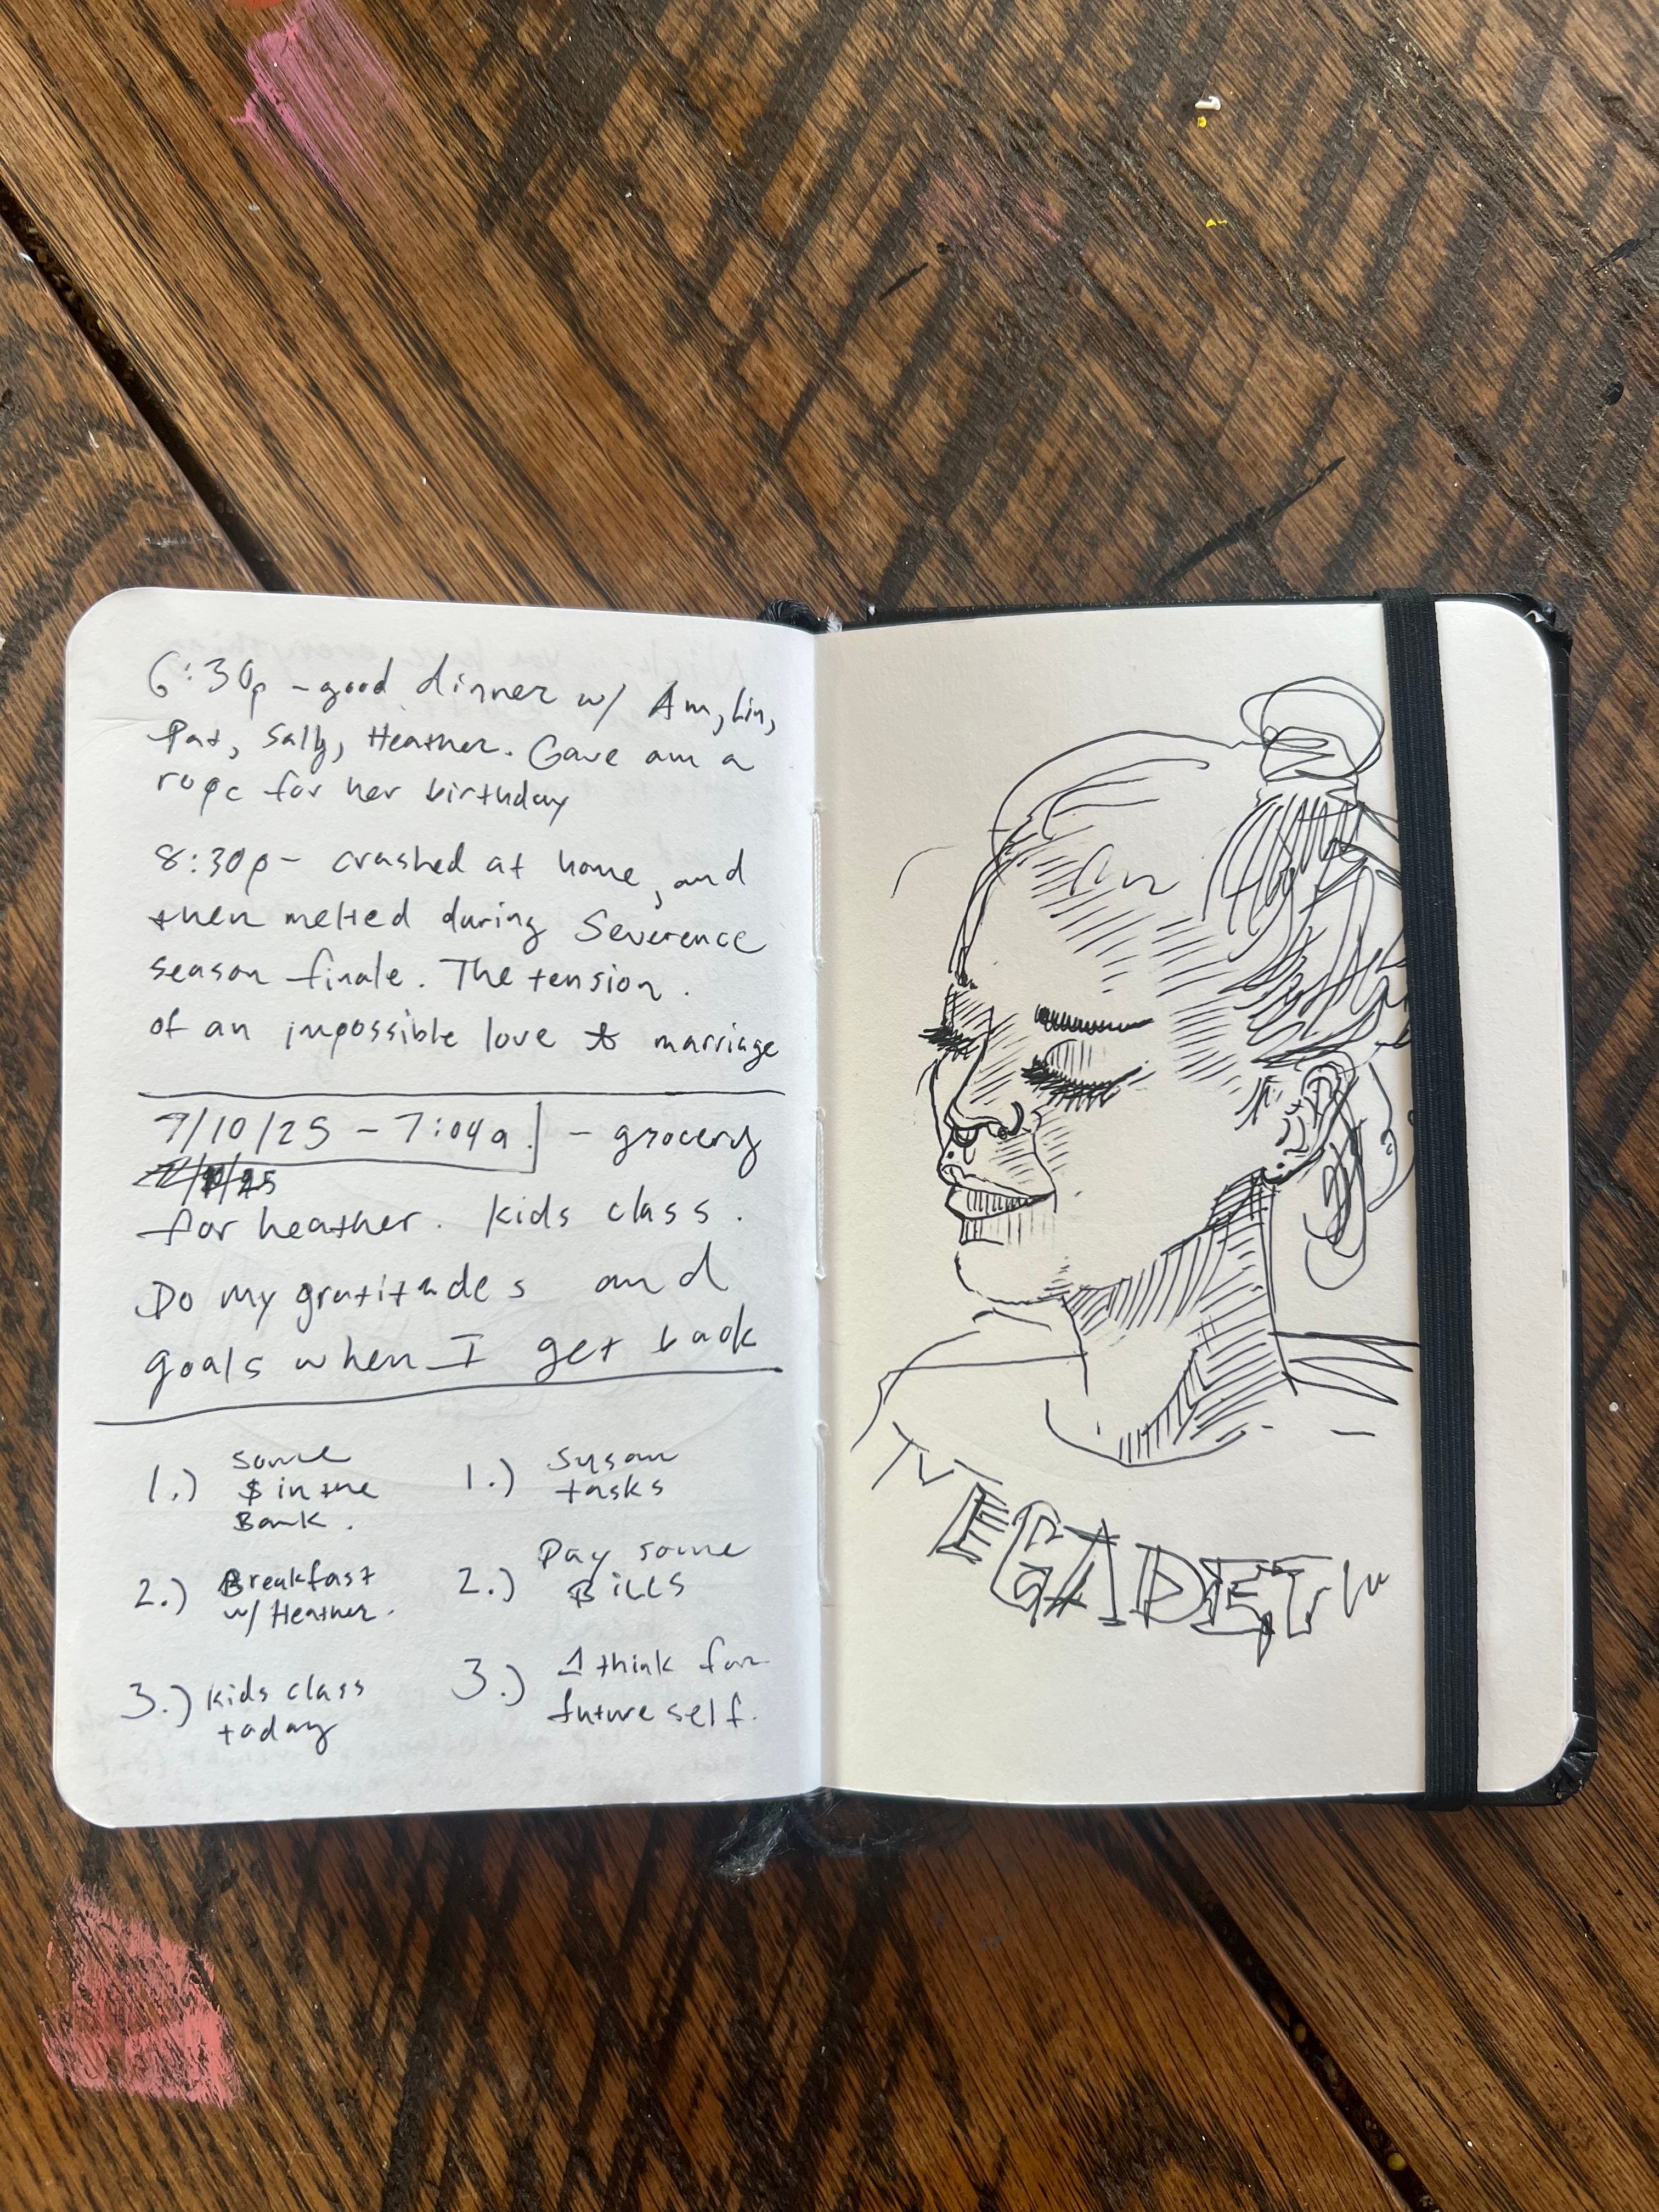 6:30p - good dinner w/ Am, Lin,
Pat, Sally, Heather. Gave am a
rope for her birthday
8:30p - crashed at home, and
then melted during Severence
season finale. The tension.
of an impossible love & marriage
7/10/25 - 7:04a. - grocery
for heather. kids class.
Do my gratitudes and
goals when I get back
1.) some
$ in the
Bank.
2.) Breakfast
w/ Heather.
3.) kids class
today
1.) Susan
tasks
2.) Pay some
Bills
3.) 1 think for
future self.
EGADET